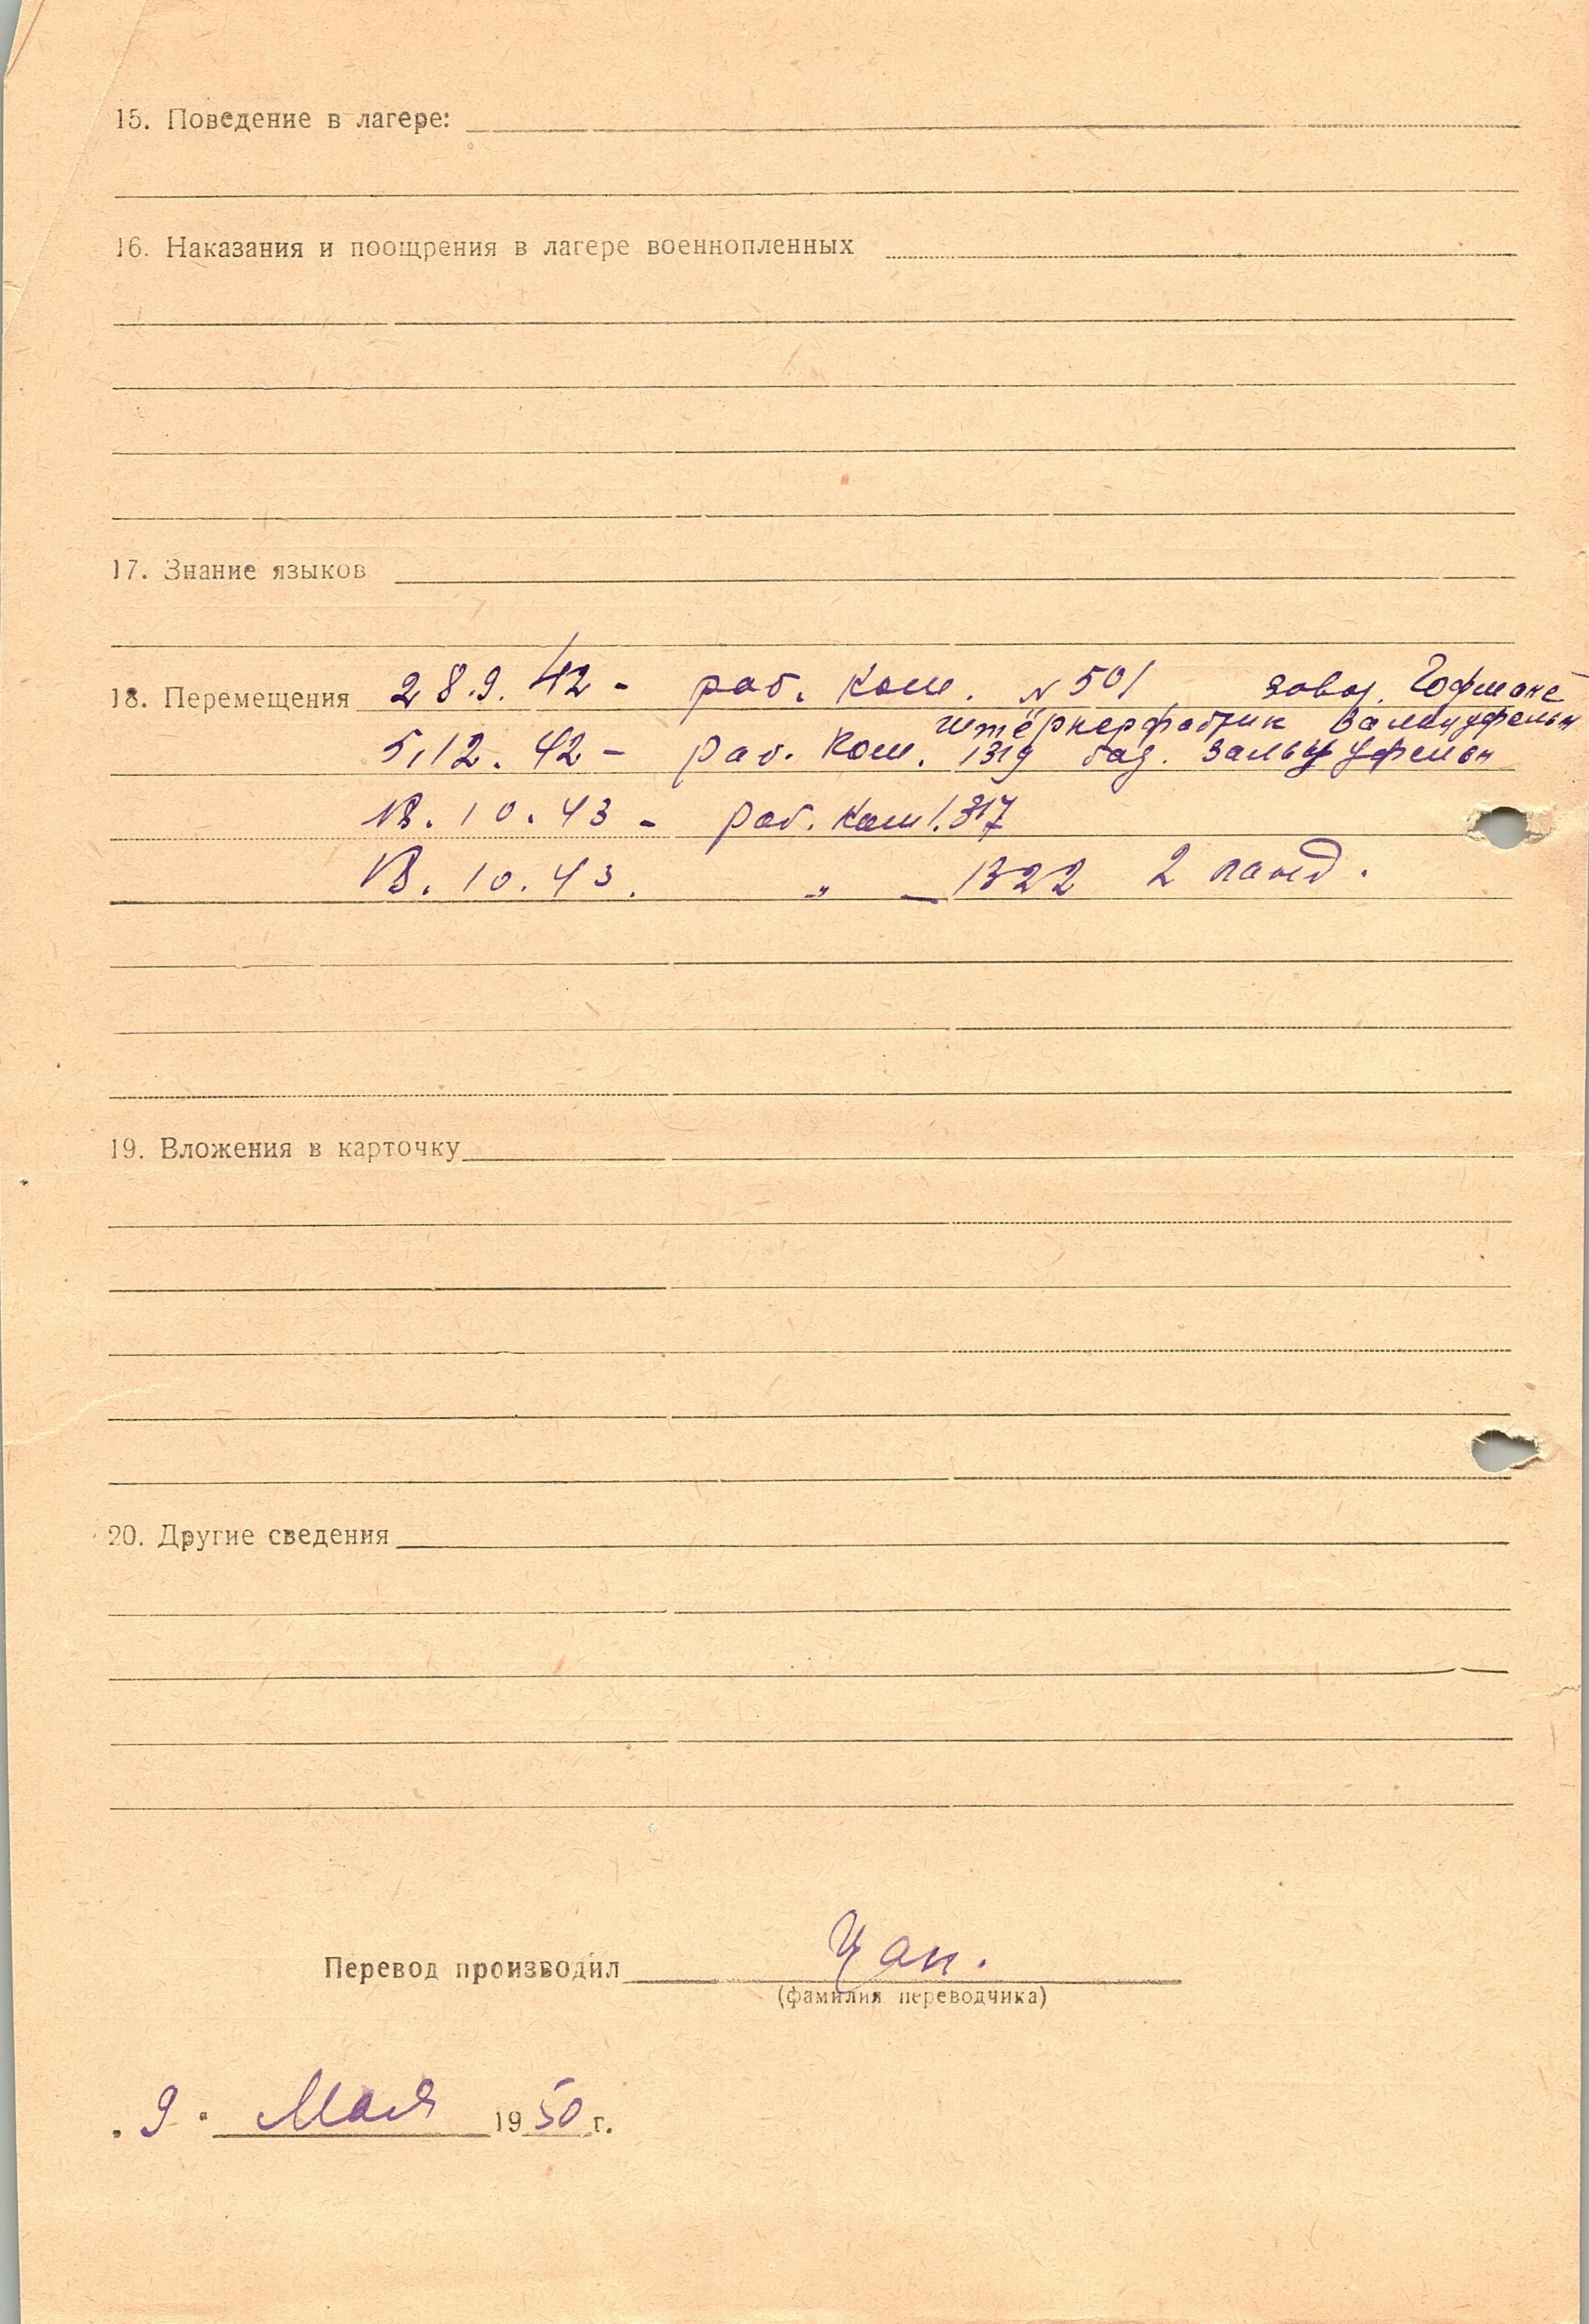 15. Поведение в лагере:
16. Наказания и поощрения в лагере военнопленных
17. Знание языков
18. Перемещения 28.9.42 - раб. ком. N 501 завод. Гофмане
штёркерфабрик
5.12.42 - раб. ком. 1319 бад. Зальцуфельн
10.43 - раб. ком 1.317
10.43. „ — 1322
19. Вложения в карточку
20. Другие сведения
Перевод производил Цап.
(фамилия переводчика)
„ 9 " Мая 1950 г.